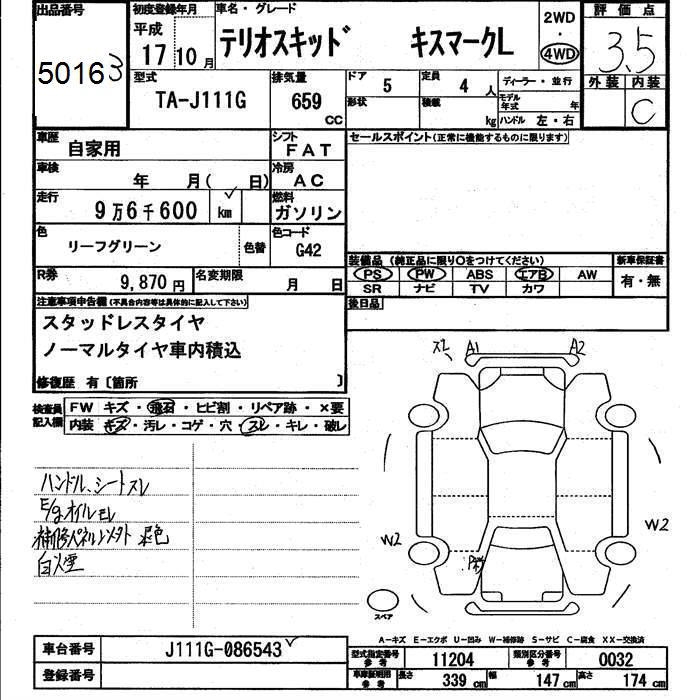 出品番号
50163
初度登録年月
平成
17 10 月
車名・グレード
テリオスキッド キスマークL
2WD
・
4WD
評価点
3.5
外装 内装
C
型式
TA-J111G
排気量
659
CC
ドア
5
定員
4 人
形状
積載
kg
ディーラー・並行
モデル年式 年
ハンドル 左・右
車歴
自家用
シフト
FAT
車検
年 月( 日)
冷房
AC
走行
9万6千600 km
燃料
ガソリン
色
リーフグリーン
色替
色コード
G42
R券
9,870円
名変期限
月 日
セールスポイント(正常に機能するものに限ります)
装備品 (純正品に限り○をつけてください)
PS PW ABS エアB AW
SR ナビ TV カワ
新車保証書
有・無
後日品
注意事項申告欄(不具合内容等は具体的に記入して下さい)
スタッドレスタイヤ
ノーマルタイヤ車内積込
修復歴 有〔箇所 〕
検査員記入欄
FW キズ・飛石・ヒビ割・リペア跡・×要
内装 キズ・汚レ・コゲ・穴・スレ・キレ・破レ
ハンドル、シートスレ
E/gオイルモレ
補修パネル以外 退色
白煙
ス2 A1 A2
W2 W2
スペア
A-キズ E-エクボ U-凹み W-補修跡 S-サビ C-腐食 XX-交換済
車台番号
J111G-086543
登録番号
型式指定番号 参考
11204
類別区分番号 参考
0032
車庫証明用 参考
長さ 339 cm 幅 147 cm 高さ 174 cm